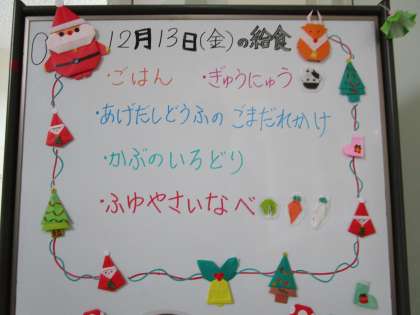 12月13日(金)の給食
・ごはん ・ぎゅうにゅう
・あげだしどうふの ごまだれかけ
・かぶのいろどり
・ふゆやさいなべ